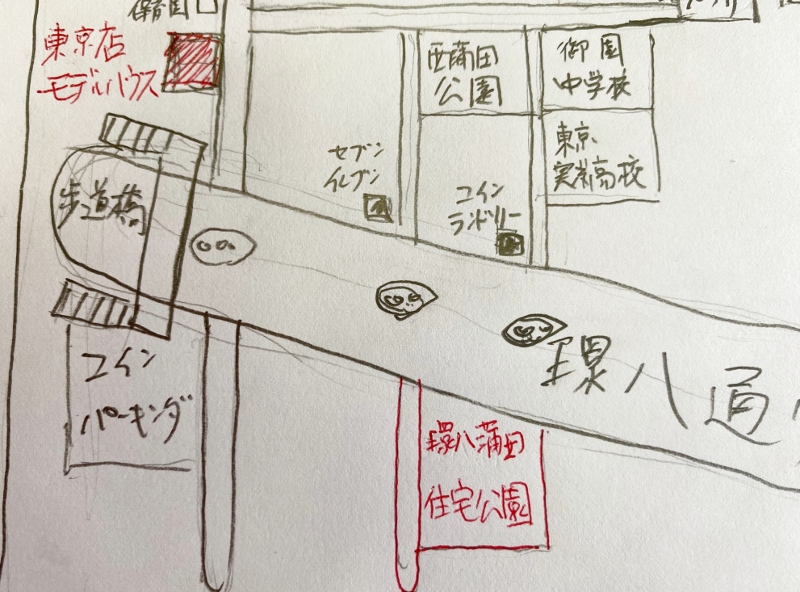 保育園
東京店
モデルハウス
西蒲田
公園
御園
中学校
東京
実業高校
セブン
イレブン
コイン
ランドリー
歩道橋
環八通
コイン
パーキング
環八蒲田
住宅公園